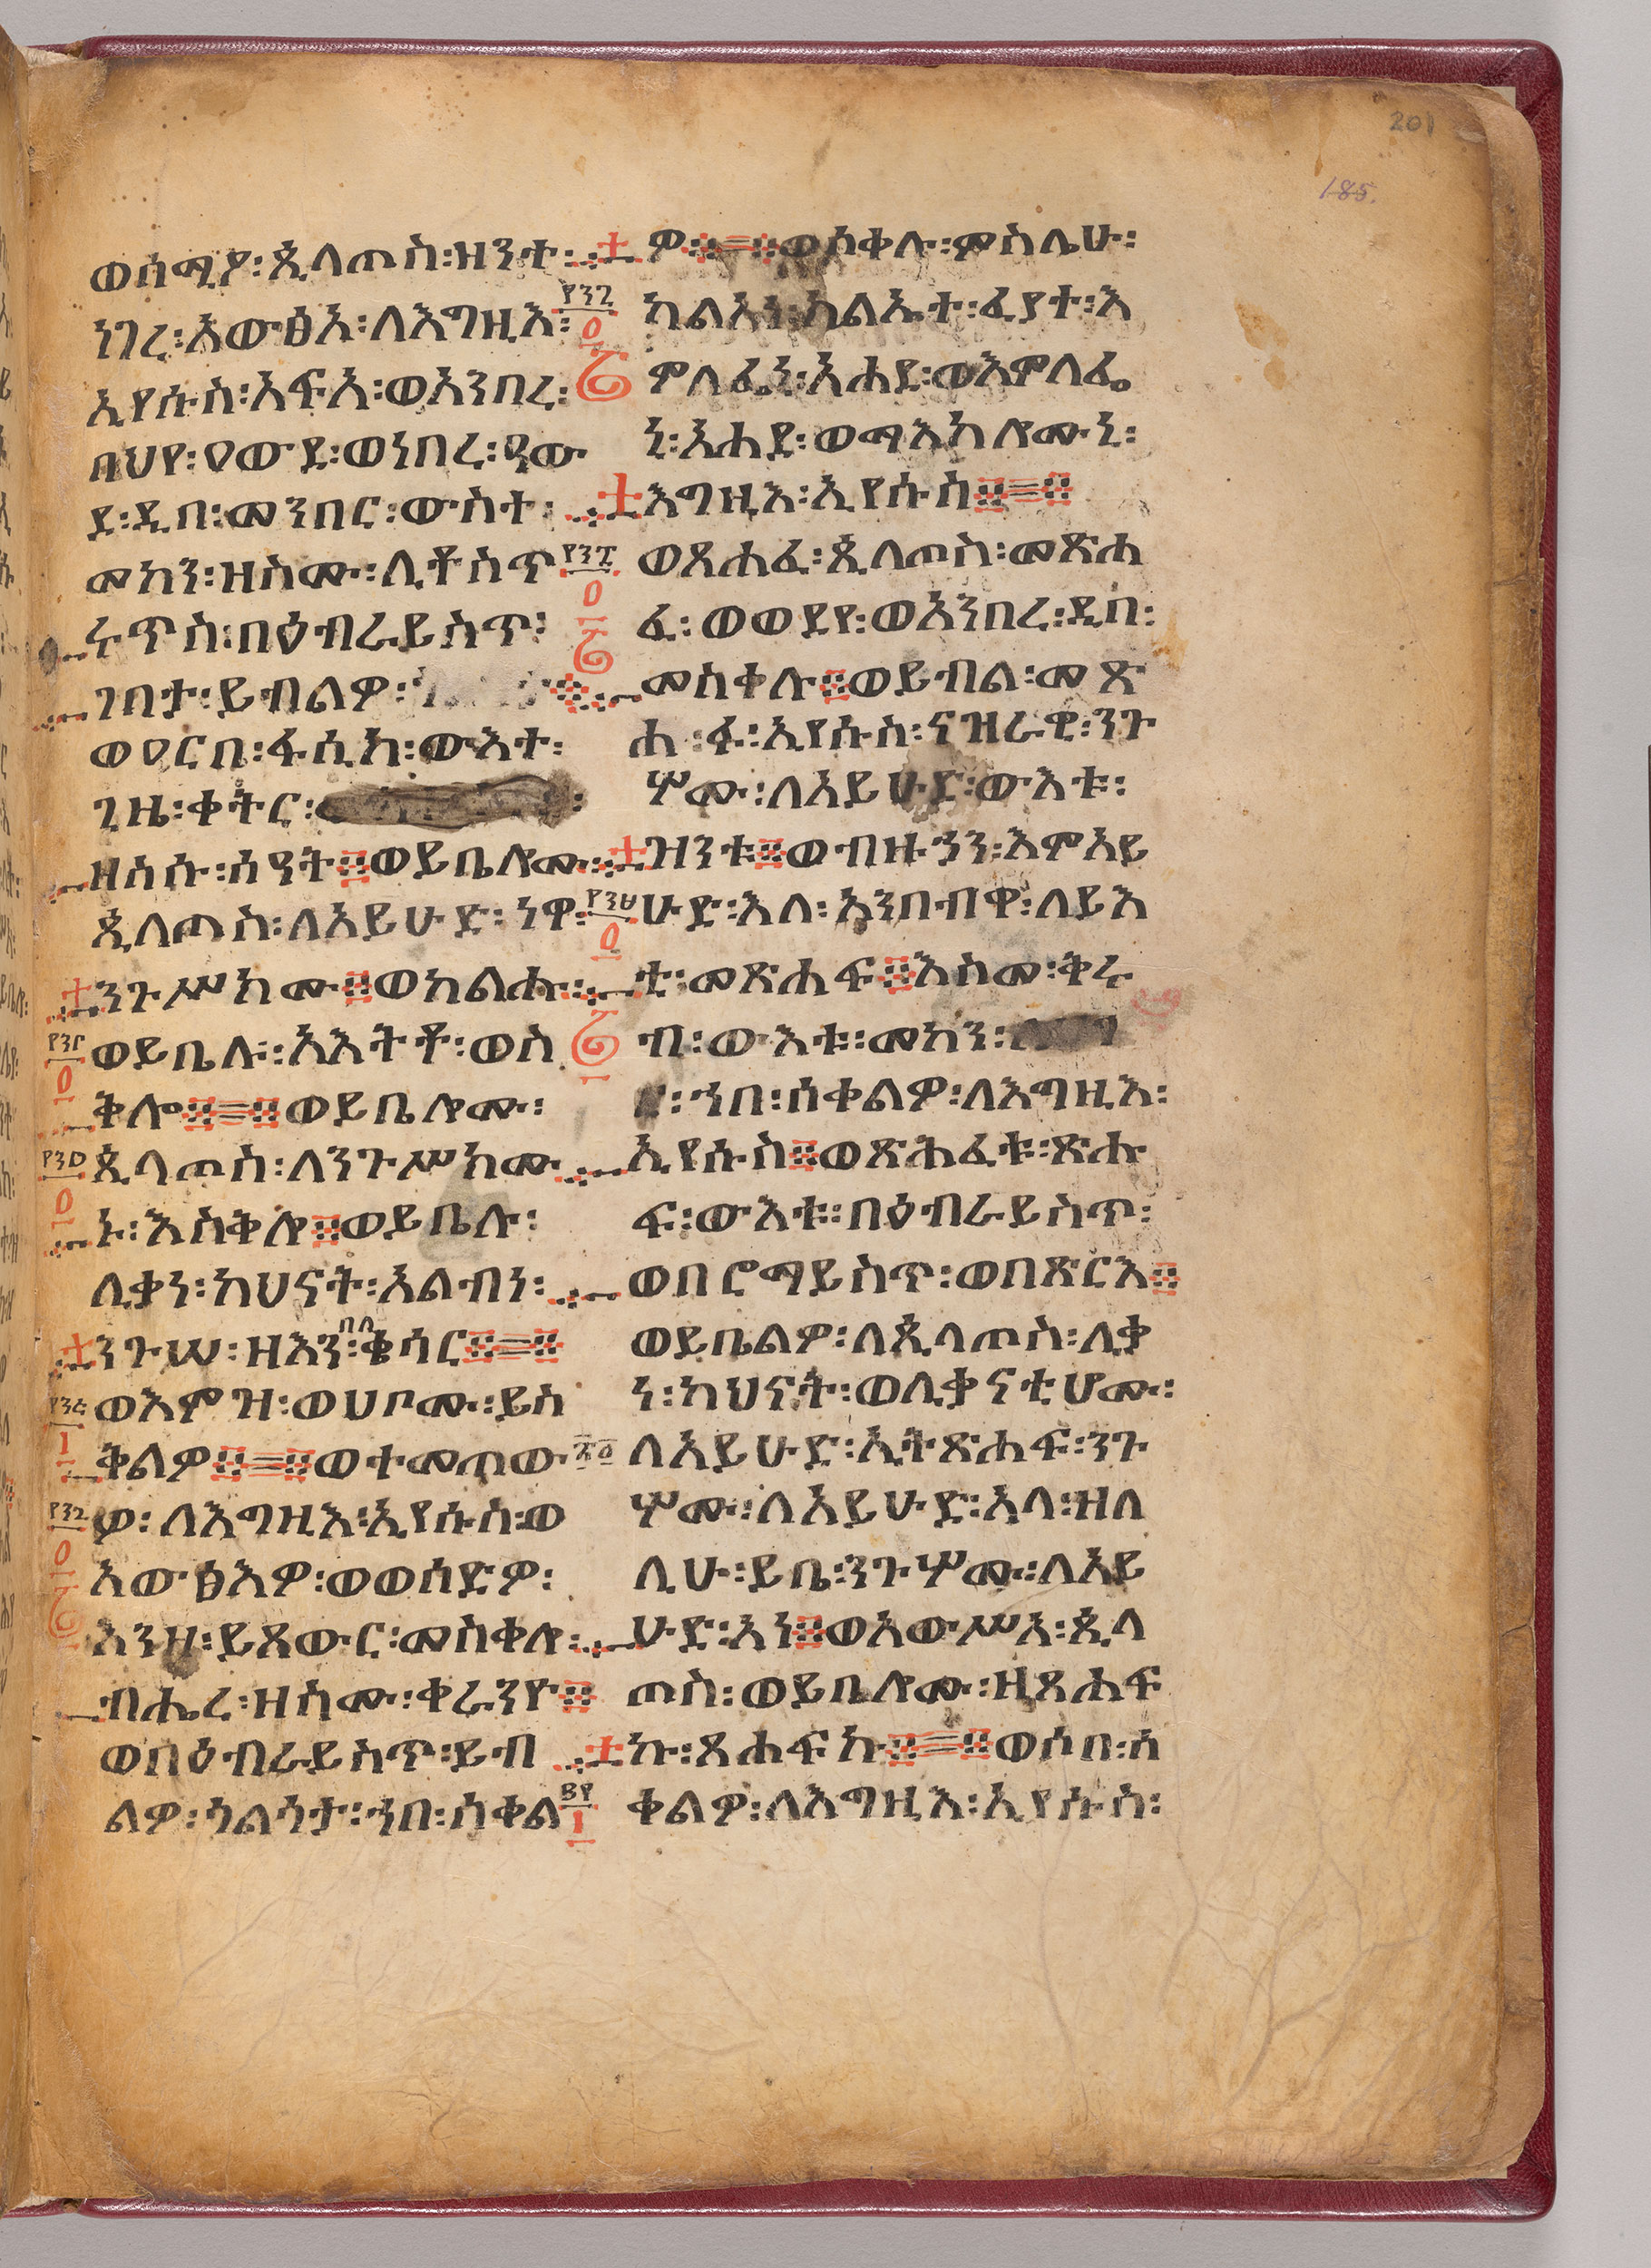 201
185.
ወሰሚዖ፡ጲላጦስ፡ዘንተ፡
ነገረ፡አውፅአ፡ለእግዚእ፡
ኢየሱስ፡አፍአ፡ወአንበረ፡
በህየ፡ዐውደ፡ወነበረ፡ዓው
ደ፡ዲበ፡መንበር፡ውስተ፡
መካን፡ዘስሙ፡ሊቶስጥ
ሩጥስ፡በዕብራይስጥ፡
ገበታ፡ይብልዎ፡
ወዐርበ፡ፋሲካ፡ውእተ፡
ጊዜ፡ቀትር፡
ዘስሱ፡ሰዓት፨ወይቤሎሙ፡
ጲላጦስ፡ለአይሁድ፡ነዋ፡
ንጉሥክሙ፨ወከልሑ፡
ወይቤሉ፡አእትቶ፡ወስ
ቅሎ፨=፨ወይቤሎሙ፡
ጲላጦስ፡ለንጉሥክሙ
ኑ፡እስቅሎ፨ወይቤሉ፡
ሊቃነ፡ካህናት፡አልብነ፡
በለ
ንጉሠ፡ዘእን፡ቄሳር፨=፨
ወእምዝ፡ወሀቦሙ፡ይስ
ቅልዎ፨=፨ወተመጠው
ዎ፡ለእግዚእ፡ኢየሱስ፡ወ
አውፅእዎ፡ወወሰድዎ፡
እንዘ፡ይጸውር፡መስቀሎ፡
ብሔረ፡ዘስሙ፡ቀራንዮ፨
ወበዕብራይስጥ፡ይብ
ልዎ፡ጎልጎታ፡ኀበ፡ሰቀል
ዎ፨=፨ወሰቀሉ፡ምስሌሁ፡
ካልአነ፡ካልኤተ፡ፈያተ፡እ
ምለፌነ፡አሐደ፡ወእምለፌ
ነ፡አሐደ፡ወማእከሎሙኒ፡
እግዚእ፡ኢየሱስ፨=፨
ወጸሐፈ፡ጲላጦስ፡መጽሐ
ፈ፡ወወደየ፡ወአንበረ፡ዲበ፡
መስቀሉ፨ወይብል፡መጽ
ሐፉ፡ኢየሱስ፡ናዝራዊ፡ንጉ
ሦሙ፡ለአይሁድ፡ውእቱ፡
ዝንቱ፨ወብዙኃን፡እምአይ
ሁድ፡እለ፡አንበብዋ፡ለይእ
ቲ፡መጽሐፍ፨እስመ፡ቅሩ
ብ፡ውእቱ፡መካን፡
ኀበ፡ሰቀልዎ፡ለእግዚእ፡
ኢየሱስ፨ወጽሕፈቱ፡ጽሑ
ፍ፡ውእቱ፡በዕብራይስጥ፡
ወበሮማይስጥ፡ወበጽርእ፨
ወይቤልዎ፡ለጲላጦስ፡ሊቃ
ነ፡ካህናት፡ወሊቃናቲሆሙ፡
ለአይሁድ፡ኢትጽሐፍ፡ንጉ
ሦሙ፡ለአይሁድ፡አላ፡ዘለ
ሊሁ፡ይቤ፡ንጉሦሙ፡ለአይ
ሁድ፡አነ፨ወአውሥአ፡ጲላ
ጦስ፡ወይቤሎሙ፡ዘጸሐፍ
ኩ፡ጸሐፍኩ፨=፨ወሶበ፡ሰ
ቀልዎ፡ለእግዚእ፡ኢየሱስ፡